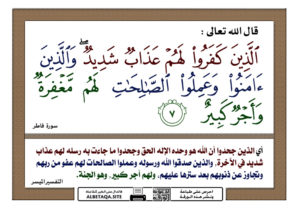 قال الله تعالى :
الَّذِينَ كَفَرُوا لَهُمْ عَذَابٌ شَدِيدٌ ۖ وَالَّذِينَ
ءَامَنُوا وَعَمِلُوا الصَّالِحَاتِ لَهُم مَّغْفِرَةٌ
وَأَجْرٌ كَبِيرٌ ٧
سورة فاطر
أي الذين جحدوا أن الله هو وحده الإله الحق وجحدوا ما جاءت به رسله لهم عذاب
شديد في الآخرة. والذين صدقوا الله ورسوله وعملوا الصالحات لهم عفو من ربهم
وتجاوز عن ذنوبهم بعد سترها عليهم، ولهم أجر كبير، وهو الجنة.
التفسير الميسر
ALBETAQA.SITE
احرص على طباعة
ونشر هذه الورقة